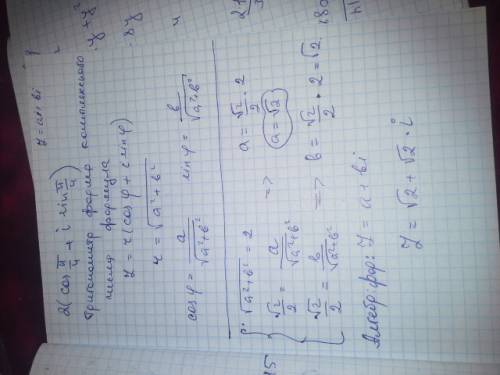 2(cos π/4 + i sin π/4)
z = a + bi
Тригонометр форма комплексного
формула
z = r(cos φ + i sin φ)
r = √(a² + b²)
cos φ = a/√(a² + b²) sin φ = b/√(a² + b²)
√(a² + b²) = 2
√2/2 = a/√(a² + b²) => a = √2/2 · 2
a = √2
√2/2 = b/√(a² + b²) => b = √2/2 · 2 = √2
Алгебр. фор: z = a + bi
z = √2 + √2 · i